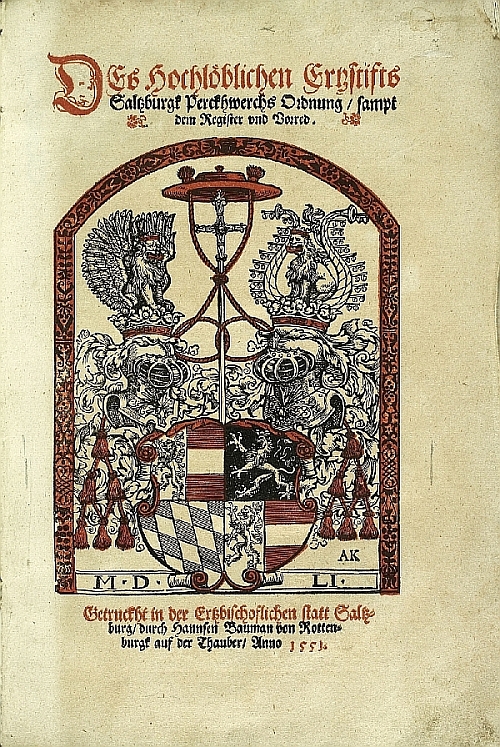 DEs Hochlöblichen Ertzstifts
Saltzburgk Perckhwerchs Ordnung / sampt
dem Register vnd Vorred.
AK
M·D· LI·
Getruckht in der Ertzbischoflichen statt Saltz-
burg / durch Hannsen Bauman von Rotten-
burgk auf der Thauber / Anno 1551.